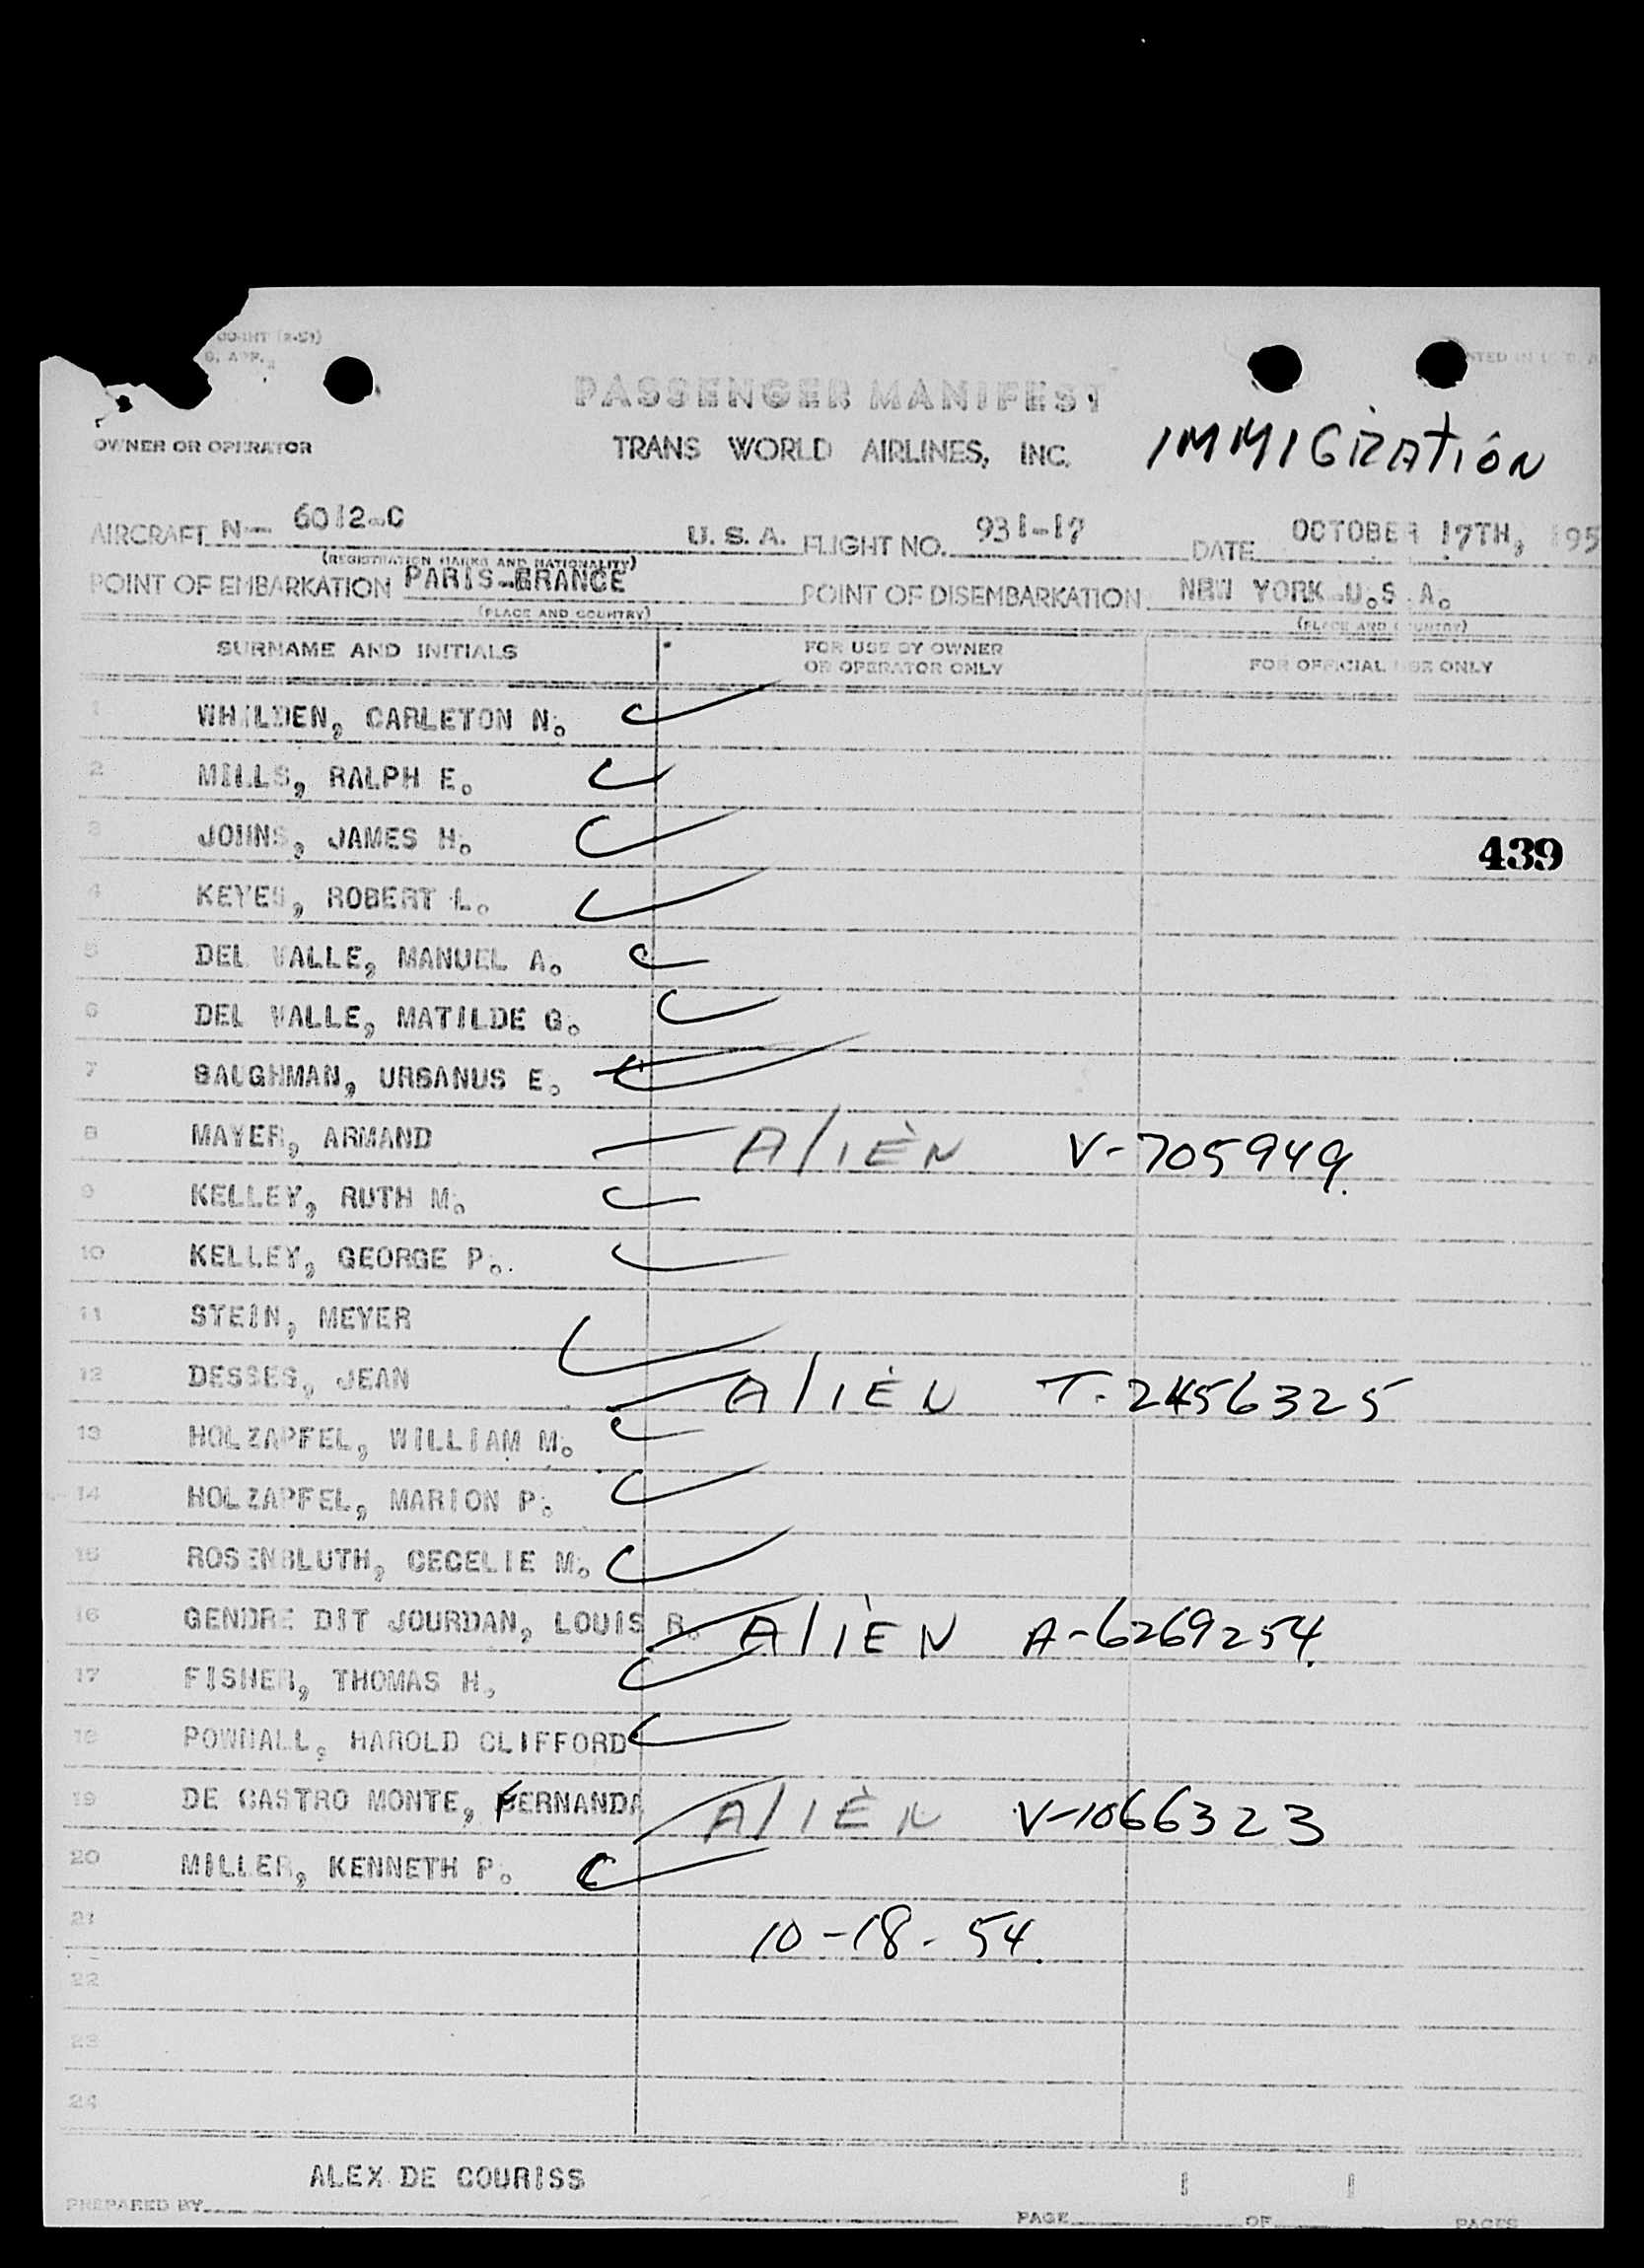 PASSENGER MANIFEST
OWNER OR OPERATOR TRANS WORLD AIRLINES, INC. IMMIGRATION
AIRCRAFT N- 6012-C U. S. A. FLIGHT NO. 931-17 DATE OCTOBER 17TH, 195
(REGISTRATION MARKS AND NATIONALITY)
POINT OF EMBARKATION PARIS-FRANCE POINT OF DISEMBARKATION NEW YORK U.S.A.
(PLACE AND COUNTRY) (PLACE AND COUNTRY)
SURNAME AND INITIALS FOR USE BY OWNER OR OPERATOR ONLY FOR OFFICIAL USE ONLY
1 WHILDEN, CARLETON N.
2 MILLS, RALPH E.
3 JOHNS, JAMES H.
439
4 KEYES, ROBERT L.
5 DEL VALLE, MANUEL A.
6 DEL VALLE, MATILDE G.
7 BAUGHMAN, URBANUS E.
8 MAYER, ARMAND ALIEN V-705949.
9 KELLEY, RUTH M.
10 KELLEY, GEORGE P.
11 STEIN, MEYER
12 DESSES, JEAN ALIEN T-2456325
13 HOLZAPFEL, WILLIAM M.
14 HOLZAPFEL, MARION P.
15 ROSENBLUTH, CECELIE M.
16 GENDRE DIT JOURDAN, LOUIS R. ALIEN A-6269254.
17 FISHER, THOMAS H.
18 POWNALL, HAROLD CLIFFORD
19 DE CASTRO MONTE, FERNANDA ALIEN V-1066323
20 MILLER, KENNETH P.
21 10-18-54.
22
23
24
ALEX DE COURISS 1 1
PREPARED BY PAGE OF PAGES